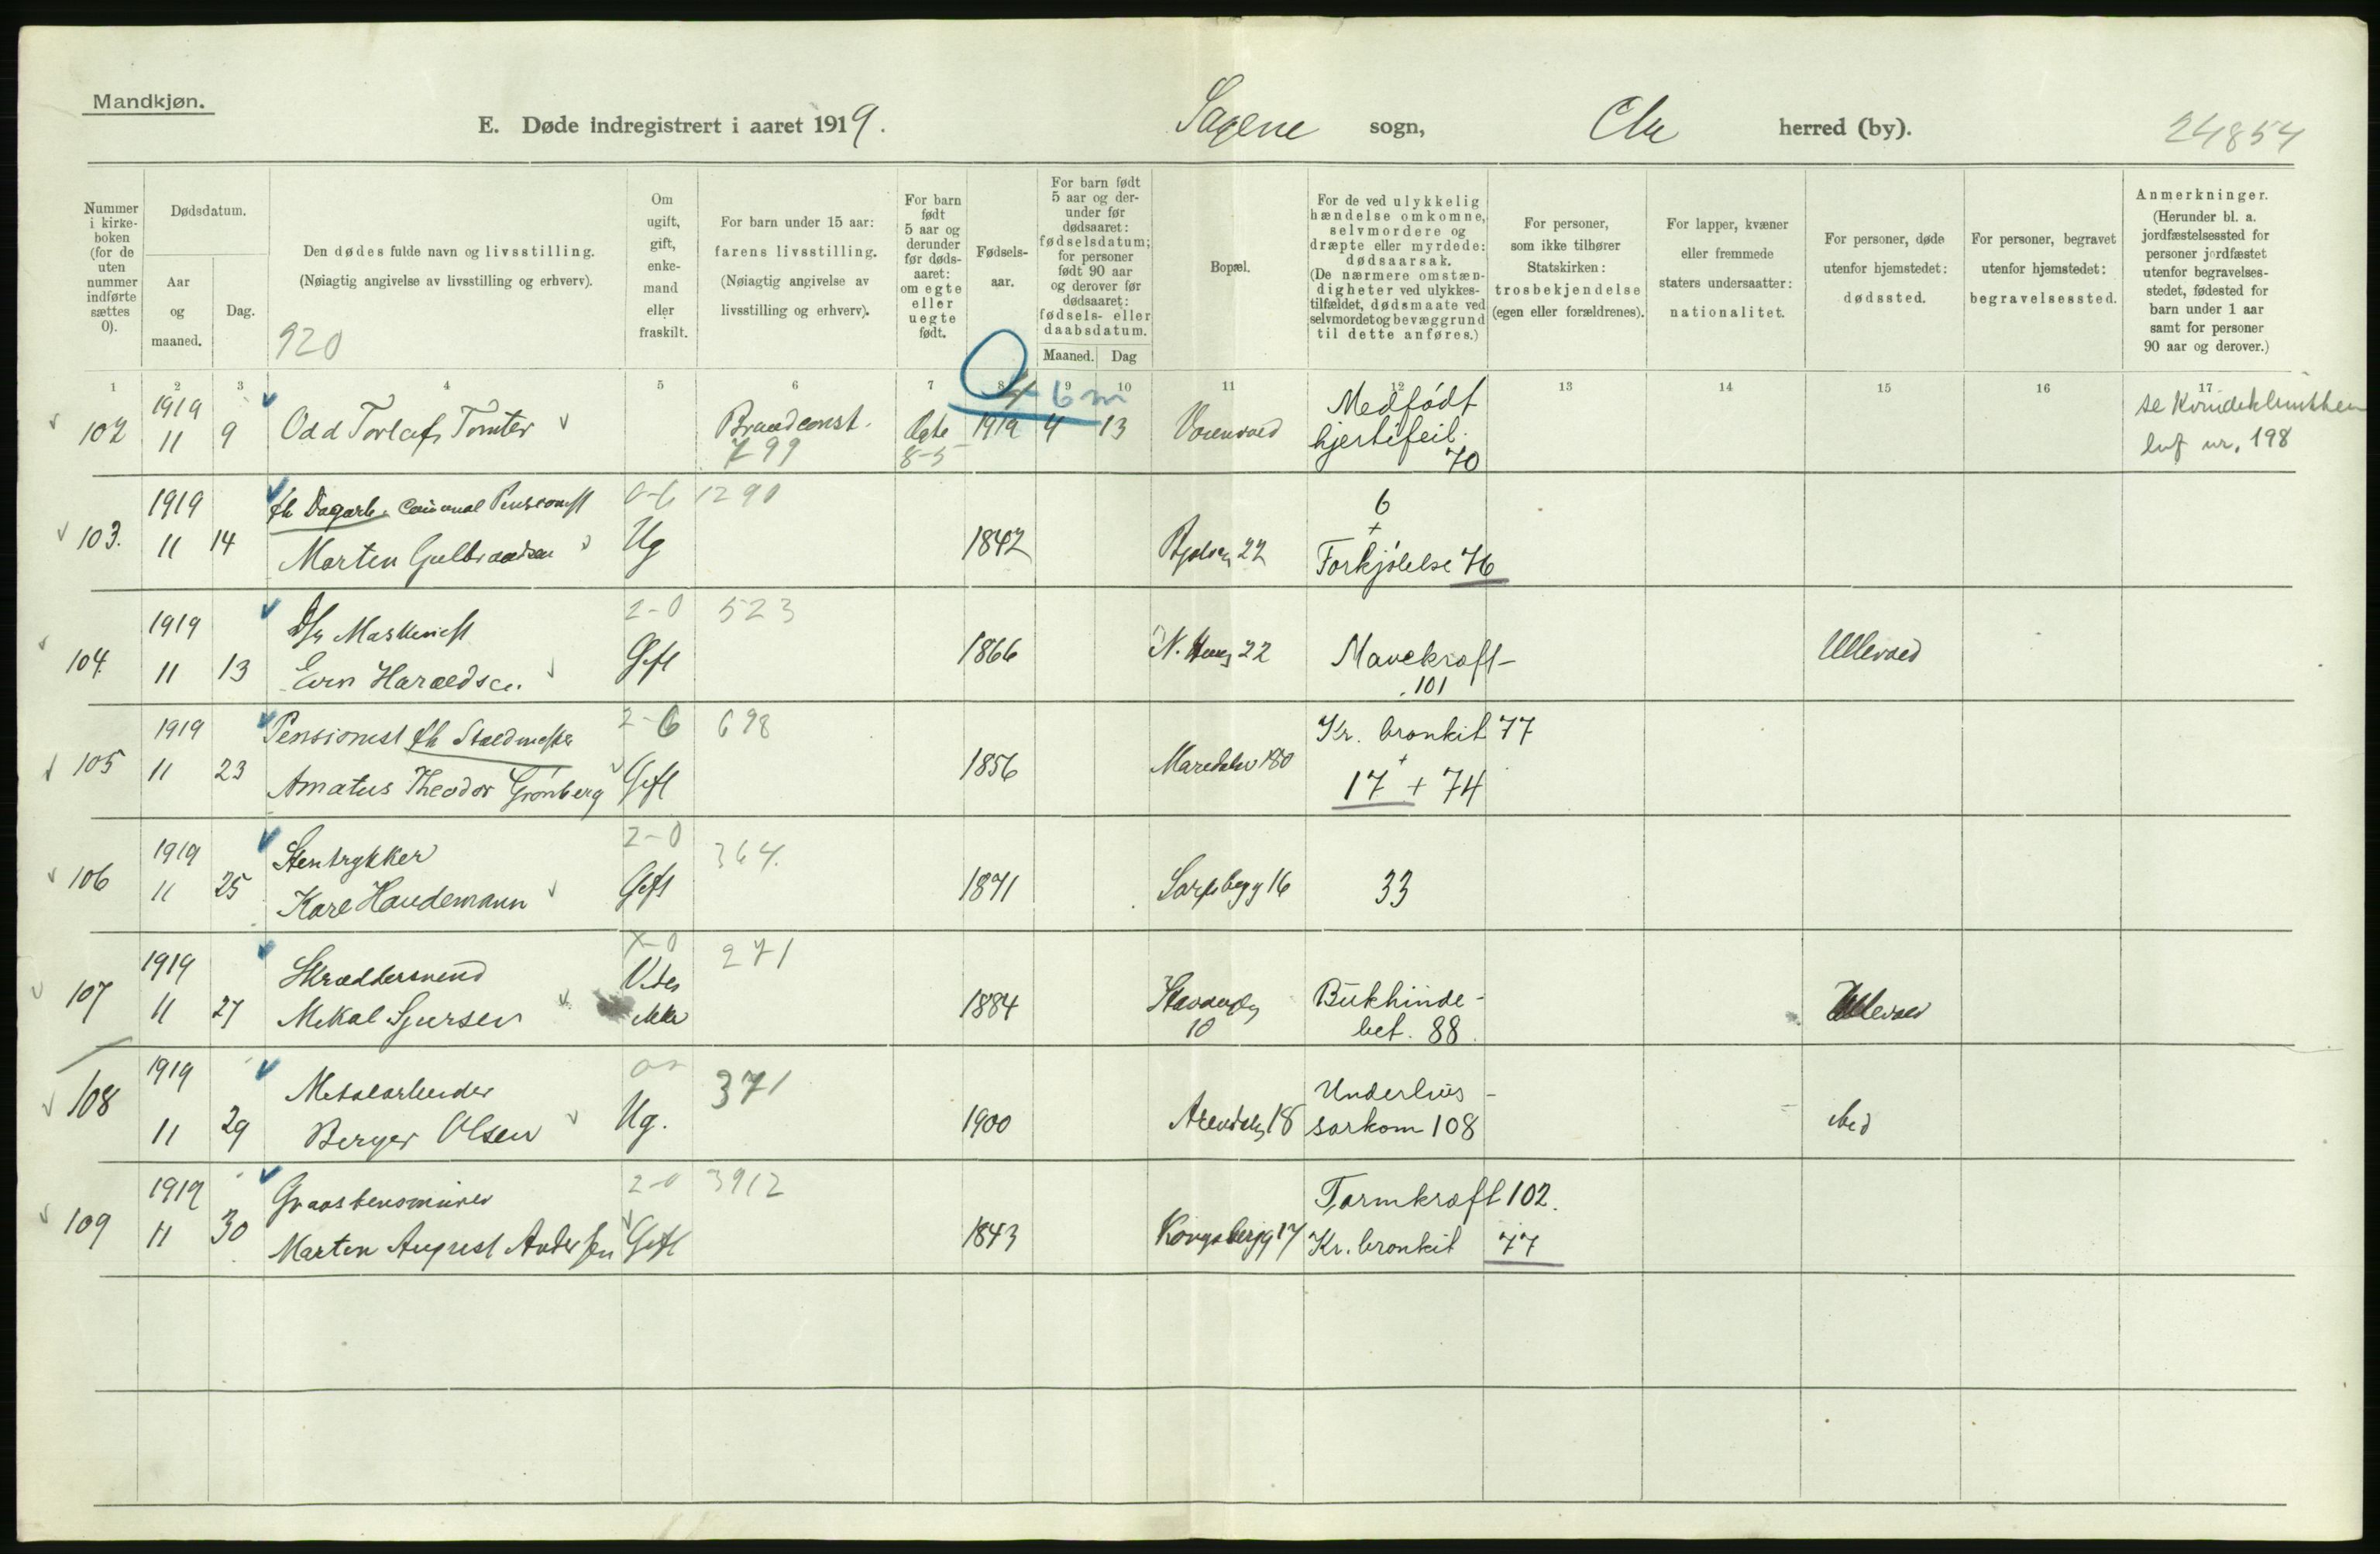 Mandkjøn.
E. Døde indregistrert i aaret 1919. Sagene sogn, Chr herred (by). 24854
Nummer i kirkeboken (for de uten nummer indførte sættes 0).
Dødsdatum.
Aar og maaned.
Dag.
Den dødes fulde navn og livsstilling.
(Nøiagtig angivelse av livsstilling og erhverv).
920
Om ugift, gift, enkemand eller fraskilt.
For barn under 15 aar: farens livsstilling.
(Nøiagtig angivelse av livsstilling og erhverv).
For barn født 5 aar og derunder før dødsaaret: om egte eller uegte født.
Fødselsaar.
For barn født 5 aar og derunder før dødsaaret: fødselsdatum; for personer født 90 aar og derover før dødsaaret: fødsels- eller daabsdatum.
Maaned. Dag
Bopæl.
For de ved ulykkelig hændelse omkomne, selvmordere og dræpte eller myrdede: dødsaarsak.
(De nærmere omstændigheter ved ulykkestilfældet, dødsmaate ved selvmordet og bevæggrund til dette anføres.)
For personer, som ikke tilhører Statskirken: trosbekjendelse (egen eller forældrenes).
For lapper, kvæner eller fremmede staters undersaatter: nationalitet.
For personer, døde utenfor hjemstedet: dødssted.
For personer, begravet utenfor hjemstedet: begravelsessted.
Anmerkninger.
(Herunder bl. a. jordfæstelsessted for personer jordfæstet utenfor begravelsesstedet, fødested for barn under 1 aar samt for personer 90 aar og derover.)
1 2 3 4 5 6 7 8 9 10 11 12 13 14 15 16 17
4 6 m
102 1919 11 9 Odd Torleif Tomter 799 8-5 1919 4 13 Medfødt hjertefeil. 70 nr. 198
103. 1919 11 14 fh Dagarb. Pensionist 0-6 1290
Marten Gulbrandsen Ug 1842 22 6 + Forkjølelse 76
104. 1919 11 13 Maskinist 2-0 523
Haraldsen Gift 1866 22 Mavekræft 101 Ullevaal
105 1919 11 23 Pensionist fh Staldmester 2-6 698
Amatus Theodor Grønberg Gift 1856 Maridalsv 180 Kr. bronkit 77 + 17 + 74
106 1919 11 25 Stentrykker 2-0 364.
Karl Handemann Gift 1871 Sarpsbgg 16 33
107 1919 11 27 Skræddersvend X-0 271
Mikal Sjursen 1884 Stavangg 10 Bukhindebet. 88. Ullevaal
108 1919 11 29 Metalarbeider 371
Berger Olsen Ug. 1900 Arendalsg 18 Underlivssarkom 108
109 1919 11 30 Graastensmurer 2-0 3912
Marten August Andersen Gift 1843 Kongsbergg 17 Tarmkræft 102.
Kr. bronkit 77